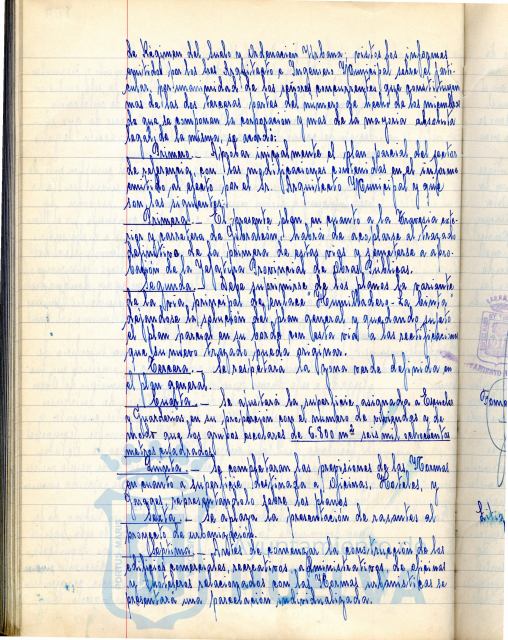 de Régimen del Suelo y Ordenación Urbana; vistos los informes
emitidos por los Sres Arquitecto e Ingeniero Municipal sobre el parti-
cular, por unanimidad de los señores concurrentes que constituyen
mas de las dos terceras partes del número de hecho de los miembros
de que se componen la corporación y mas de la mayoria absoluta
legal de la misma, se acordó:
Primero.- Aprobar inicialmente el plan parcial del sector
de referencia con las modificaciones contenidas en el informe
emitido al efecto por el Sr. Arquitecto Municipal y que
son las siguientes:
Primera.- El presente plan, en cuanto a la Travesia exte-
rior y carretera de Gibraleón, habrá de acoplarse al trazado
definitivo, de la primera de estas vias y someterse a apro-
bación de la Jefatura Provincial de Obras Públicas.
Segunda.- Debe suprimirse de los planos la variante
de la via principal de enlace "Humilladero-La Cinta"
dejandose la solución del plan general y quedando sujeto
el plan parcial en su borde con esta via a las rectificaciones
que su nuevo trazado pueda originar.
Tercera.- Se respetará la zona verde definida en
el plan general.
Cuarta.- Se ajustará la superficie asignada a Escuelas
y Guarderias, en su proporcion con el número de viviendas y de
modo que los grupos escolares de 6.800 m² seis mil ochocientos
metros cuadrados.
Quinta.- Se completaran las previsiones de las Normas
en cuanto a superficie destinada a Oficinas, Hoteles, y
Garages representandolo sobre los planos
Sexta.- Se aplaza la presentación de rasantes al
proyecto de urbanización.
Séptima.- Antes de comenzar la construcción de los
edificios comerciales, recreativos, administrativos, de oficinas
y hosteleros relacionados con las Normas urbanisticas se
presentara una parcelación individualizada.